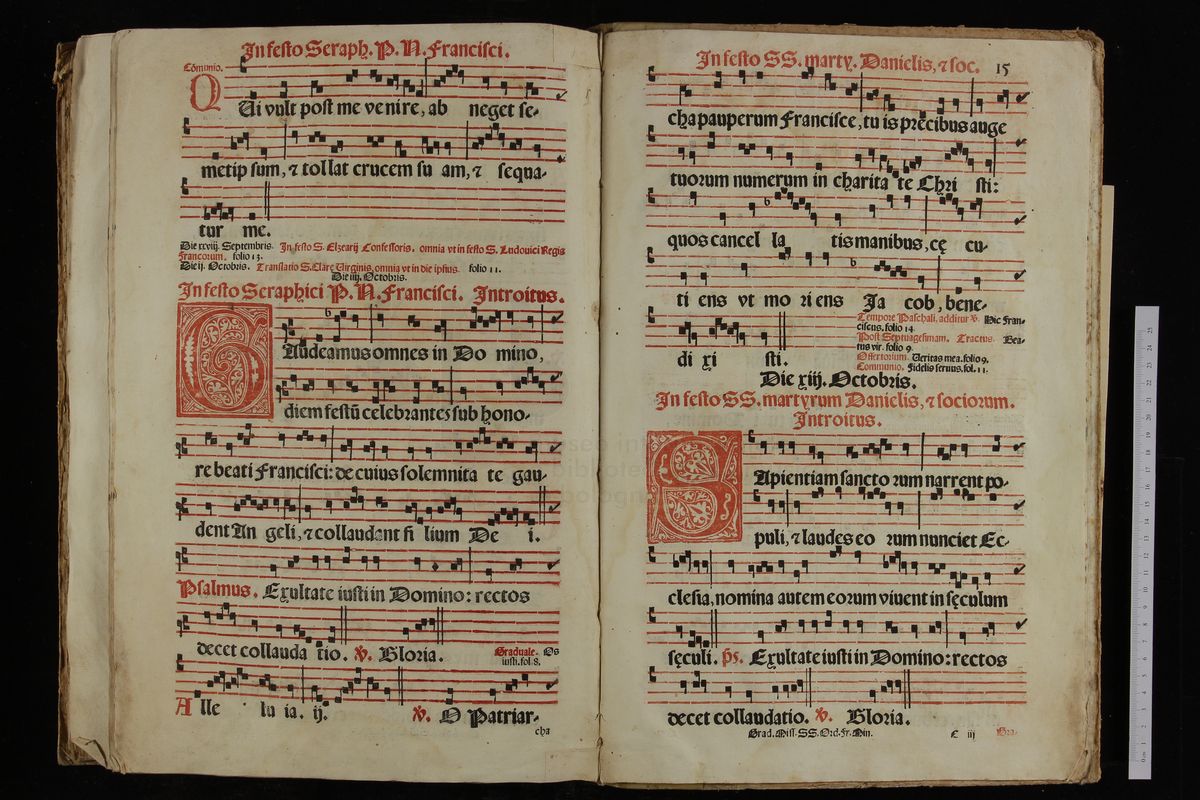 In festo Seraph. P. N. Francisci.
Cõmunio.
QUi vult post me venire, ab neget se-
metip sum, ⁊ tollat crucem su am, ⁊ sequa-
tur me.
Die xxviij. Septembris. In festo S. Elzearij Confessoris. omnia vt in festo S. Ludouici Regis
Francorum. folio 13.
Die ij. Octobris. Translatio S. Clarę Virginis, omnia vt in die ipsius. folio 11.
Die iiij. Octobris.
In festo Seraphici P. N. Francisci. Introitus.
GAudeamus omnes in Do mino,
diem festũ celebrantes sub hono-
re beati Francisci: de cuius solemnita te gau-
dent An geli, ⁊ collaudant fi lium De i.
Psalmus. Exultate iusti in Domino: rectos
decet collauda tio. ℣. Gloria. Graduale. Os
iusti. fol. 8.
Alle lu ia. ij. ℣. O Patriar-
cha
In festo SS. marty. Danielis, ⁊ soc. 15
cha pauperum Francisce, tu is precibus auge
tuorum numerum in charita te Chri sti:
quos cancel la tis manibus, cę cu-
ti ens vt mo ri ens Ia cob, bene-
di xi sti.
Tempore Paschali, additur ℣. Hic Fran-
ciscus. folio 14.
Post Septuagesimam. Tractus. Bea-
tus vir. folio 9.
Offertorium. Veritas mea. folio 9.
Communio. Fidelis seruus. fol. 11.
Die xiij. Octobris.
In festo SS. martyrum Danielis, ⁊ sociorum.
Introitus.
SApientiam sancto rum narrent po-
puli, ⁊ laudes eo rum nunciet Ec-
clesia, nomina autem eorum viuent in sęculum
sęculi. ps. Exultate iusti in Domino: rectos
decet collaudatio. ℣. Gloria.
Grad. Miss. SS. Ord. Fr. Min. C iij Gra-